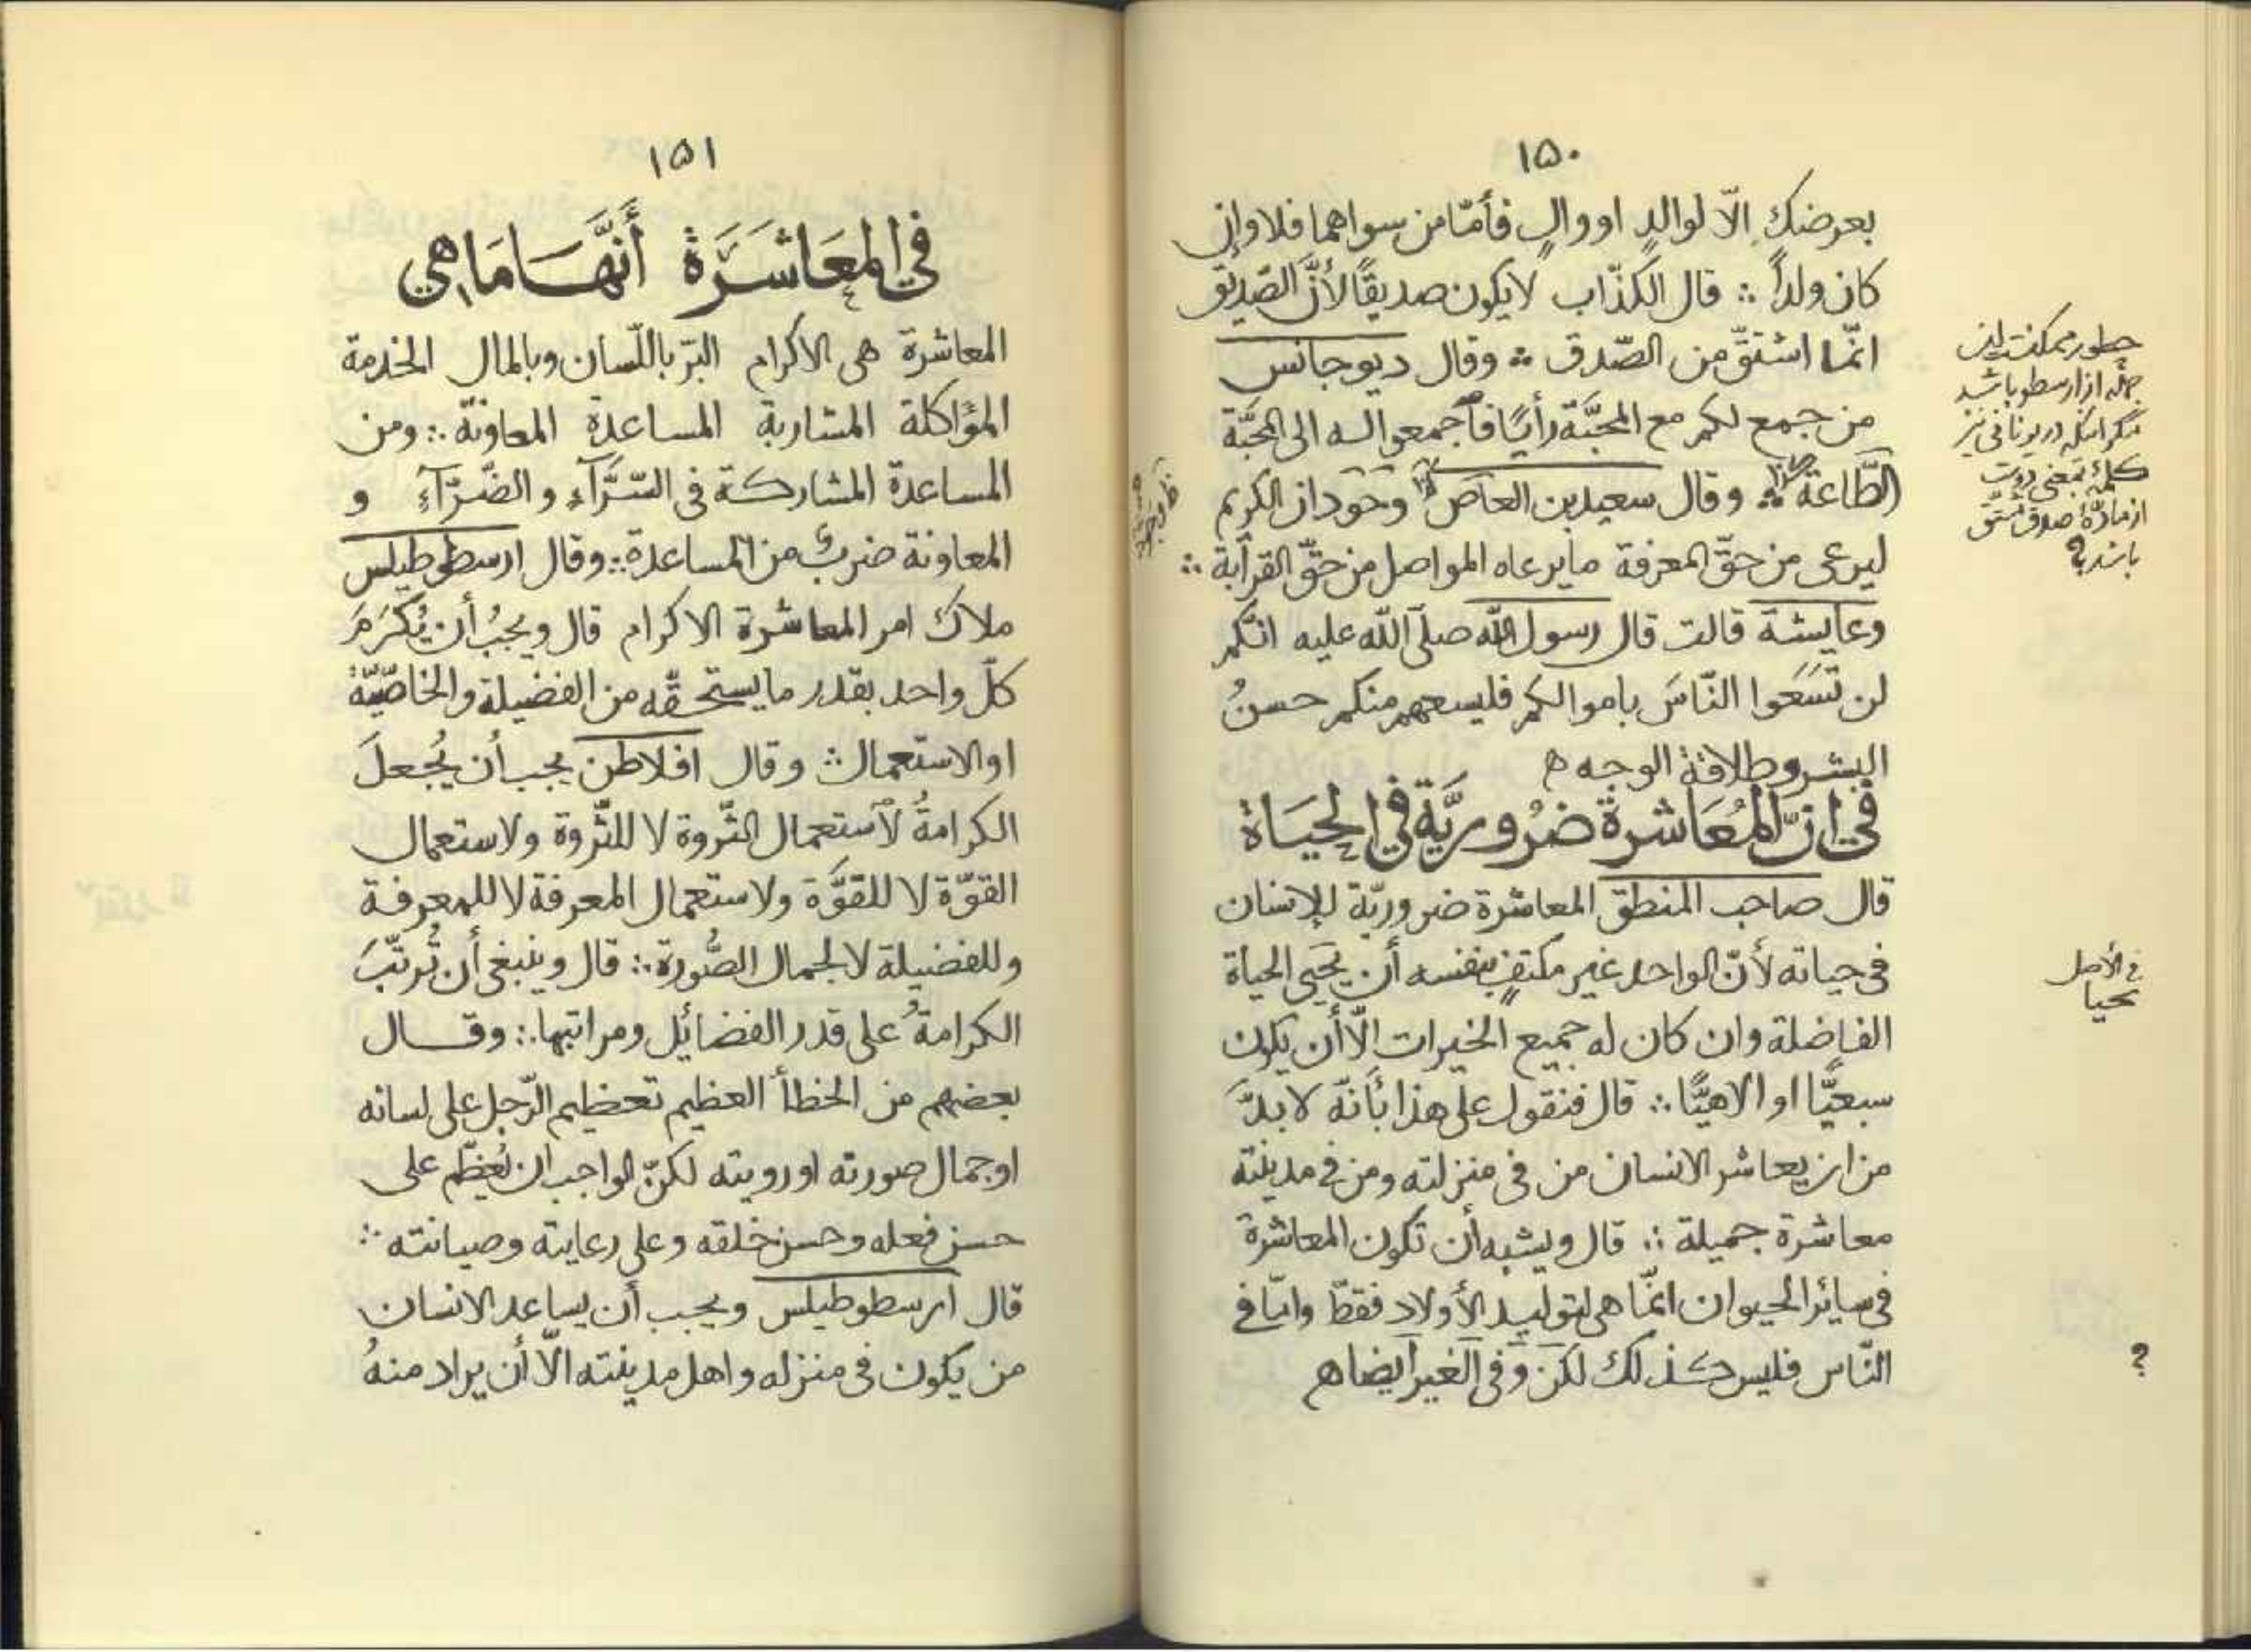 ١٥٠
بعرضك الّا لوالدٍ او والٍ فأمّا من سواهما فلا وإن
كان ولداً ∴ قال الكذّاب لا يكون صديقًا لأنّ الصّديق
انّما اشتقّ من الصّدق ∴ وقال ديوجانس
من جمع لكم مع المحبّة رأيًا فاجمعوا له الى المحبّة
الطّاعة ∴ وقال سعيد بن العاص الكريم
ليرعى من حقّ المعرفة ما يرعاه المواصل من حقّ القرآبة ∴
وعايشة قالت قال رسول الله صلّى الله عليه انّكم
لن تَسَعوا النّاسَ باموالكم فليسعهم منكم حسنُ
البشر وطلاقة الوجه ه
في انّ المُعَاشرة ضرُوريَّة في الحيَاة
قال صاحب المنطق المعاشرة ضروريّة للإنسان
فى حياته لأنّ الواحد غير مكتفٍ بنفسه أن يحيى الحياة
الفاضلة وان كان له جميع الخيرات الّا أن يكون
سبعيًّا او الاهيًّا ∴ قال فنقول على هذا بأنّه لا بدّ
من ان يعاشر الانسان من فى منزلته ومن فى مدينته
معاشرة جميلة ∴ قال ويشبه أن تكون المعاشرة
فى سائر الحيوان انّما هى لتوليد الأولاد فقطّ وامّا فى
النّاس فليس كذلك لكن وفى الغير ايضا ه
چطور ممكنست اين
جمله از ارسطو باشد
مگر اينكه در يونانى نيز
كلمهٔ بمعنى دوست
از مادّهٔ صدق مشتق
باشد؟
فى الأصل
يحيا
؟
١٥١
في المعَاشَرَة أنَّهَا مَا هي
المعاشرة هى الاكرام البرّ باللّسان وبالمال الخدمة
المؤاكلة المشاربة المساعدة المعاونة ∴ ومن
المساعدة المشاركة فى السّرَّآءِ والضّرّآءِ و
المعاونة ضربٌ من المساعدة ∴ وقال ارسطوطيلس
ملاك امر المعاشرة الاكرام قال ويجبُ أن يُكْرَمَ
كلّ واحد بقدر ما يستحقّه من الفضيلة والخاصّيّة
او الاستعمال ∴ وقال افلاطن يجب أن يُجعلَ
الكرامةُ لاستعمال الثّروة لا للثّروة ولاستعمال
القوّة لا للقوَّة ولاستعمال المعرفة لا للمعرفة
وللفضيلة لا لجمال الصُّورة ∴ قال وينبغى أن تُرتّبَ
الكرامةُ على قدر الفضائل ومراتبها ∴ وقال
بعضهم من الخطأ العظيم تعظيم الرّجل على لسانه
او جمال صورته او رويته لكنّ الواجب ان يُعظّم على
حسن فعله وحسن خلقه وعلى رعايته وصيانته ∴
قال ارسطوطيلس ويجب أن يساعد الانسان
من يكون فى منزله واهل مدينته الّا أن يراد منهُ